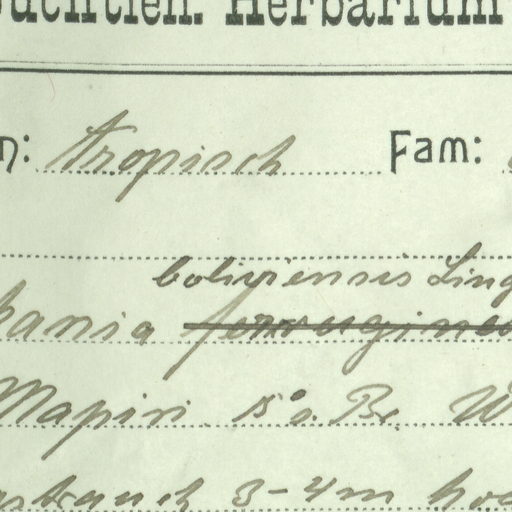 Buchtien. Herbarium
n: tropisch Fam:
boliviensis Ling
hania ferruginea
Mapiri 15° s. Br. W
strauch 3-4m hoc